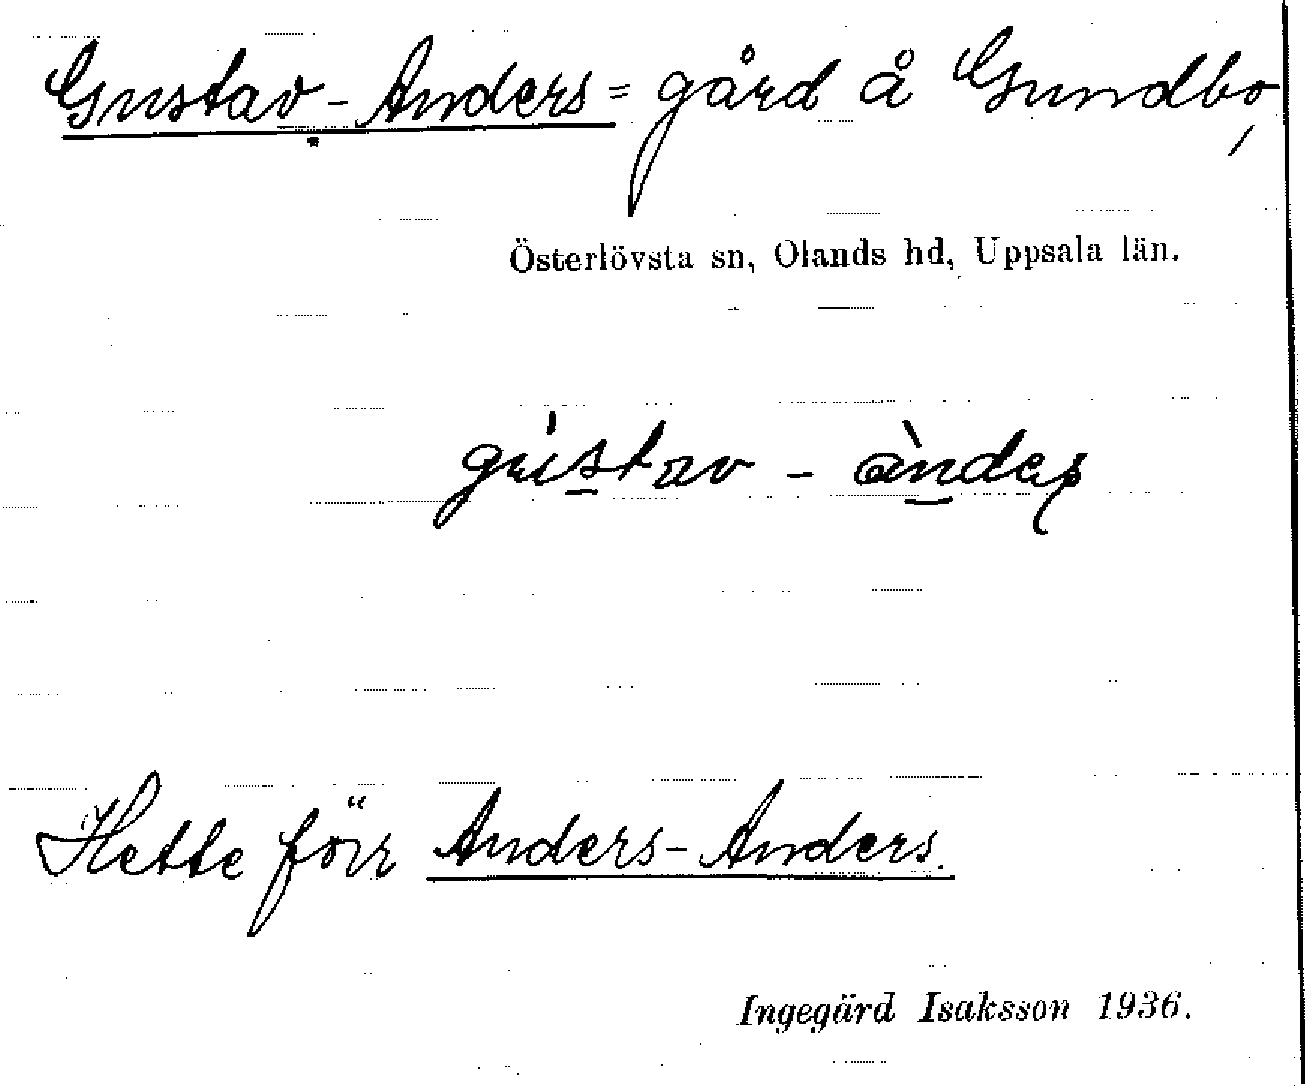 Gustav-Anders = gård å Gundbo,
Österlövsta sn, Olands hd, Uppsala län.
gústav - àndeʂ
Hette förr Anders-Anders.
Ingegärd Isaksson 1936.